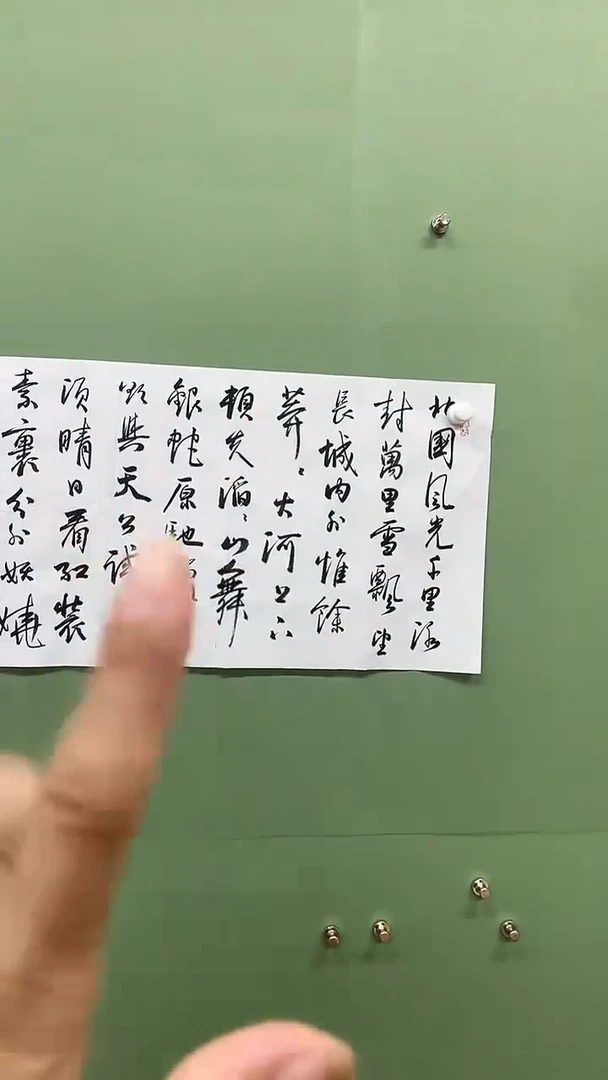 北國風光千里冰
封萬里雪飄望
長城內外惟餘
莽々大河上下
頓失滔々山舞
銀蛇原馳
欲與天公試
須晴日看紅裝
素裹分外妖嬈